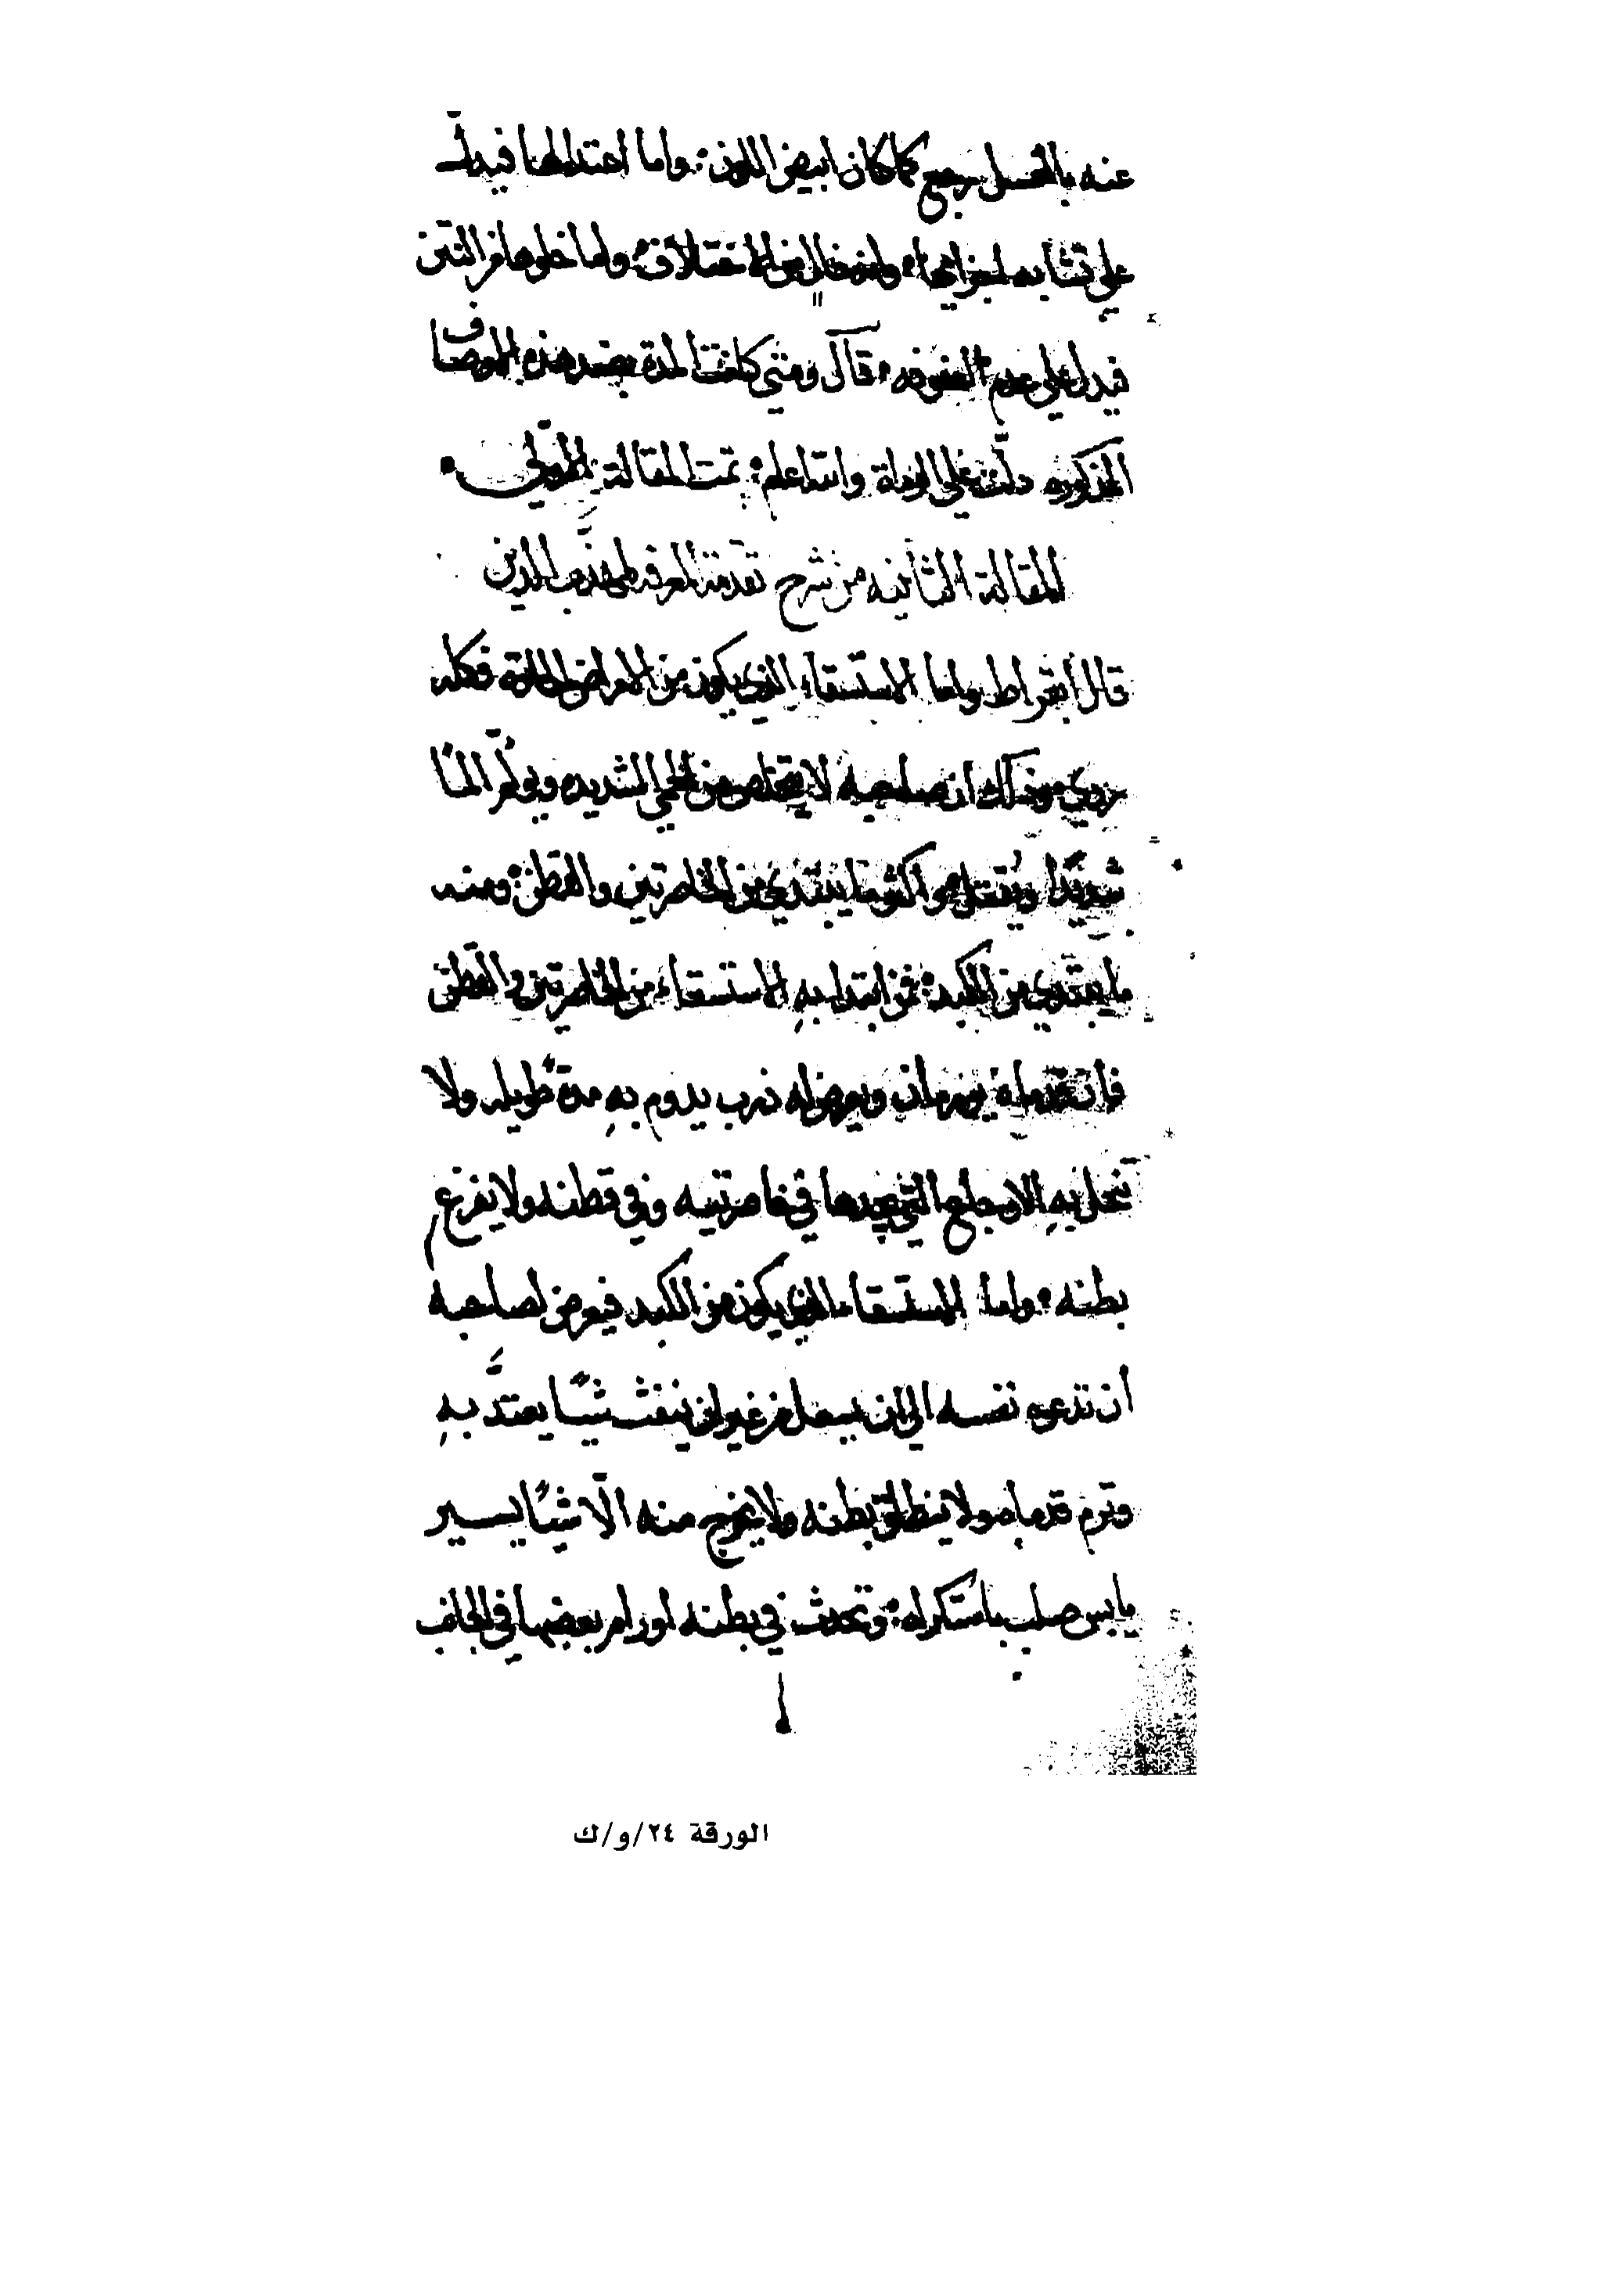 عنه بالغسل رجع كما كان ابيض اللون: واما اعتدالها فيدل
على تشابه اجزايها: وانه خال من الاختلاف: واما خلوها من النتن
فيدل على عدم العفونه: قال ومتى كانت المدة بضد هذه الاوصاف
المذكوره دلت على الرداة والله اعلم: تمت المقالة الاولى
المقالة الثانيه من شرح تقدمة المعرفة لمهذب الدين
قال ابقراط واما الاستسقاء الذي يكون من الامراض الحادة فكله
ردي وذلك ان صاحبه لا يتخلص من الحمى الشديده ويولم المًا
شديدًا ويقتل واكثر ما يبتدي من الخاصرتين والقطن: ومنه
ما يبتدي من الكبد: فمن ابتدا به الاستسقاء من الخاصرتين والقطن
فان قدماه يرمان ويعرض له ذرب يدوم به مدة طويله ولا
تنحل به الاوجاع التي يجدها في خاصرتيه وفي قطنه ولا يفرغ
بطنه: واما الاستسقاء الذي يكون من الكبد فيعرض لصاحبه
ان تدعوه نفسه الى ان يسعل من غير ان ينفث شيًا يعتدُّ بهِ
وترم قدماه ولا ينطلق بطنه ولا يخرج منه الّا شيًا يسير
يابس صلب باستكراه: وتحدث في بطنه اورام بعضها في الجانب
الورقة ٢٤/و/ك